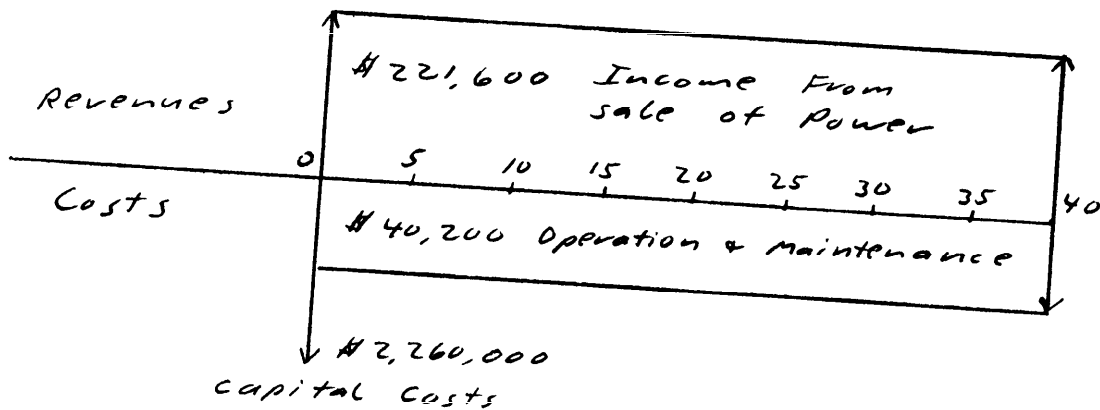 $221,600 Income From
sale of Power
Revenues
0 5 10 15 20 25 30 35 40
Costs
$40,200 Operation & Maintenance
$2,260,000
Capital Costs